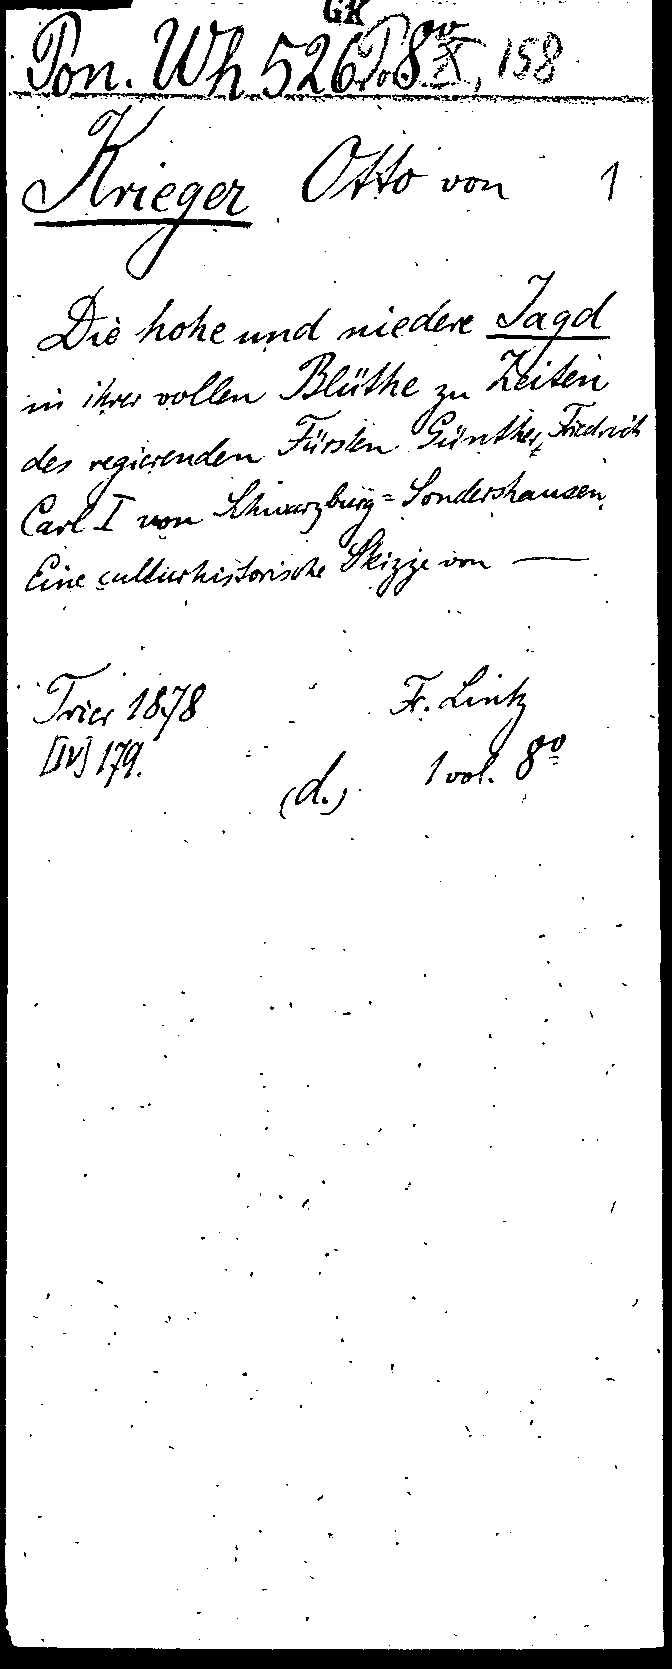 GK
Pon. Wh 526, 8°, 158
Krieger Otto von 1
Die hohe und niedere Jagd
in ihrer vollen Blüthe zu Zeiten
des regierenden Fürsten Günther, Friedrich
Carl I von Schwarzburg=Sondershausen.
Eine culturhistorische Skizze von —
Trier 1878 Fr. Lintz
[IV] 179. 1 vol. 8°
(d.)